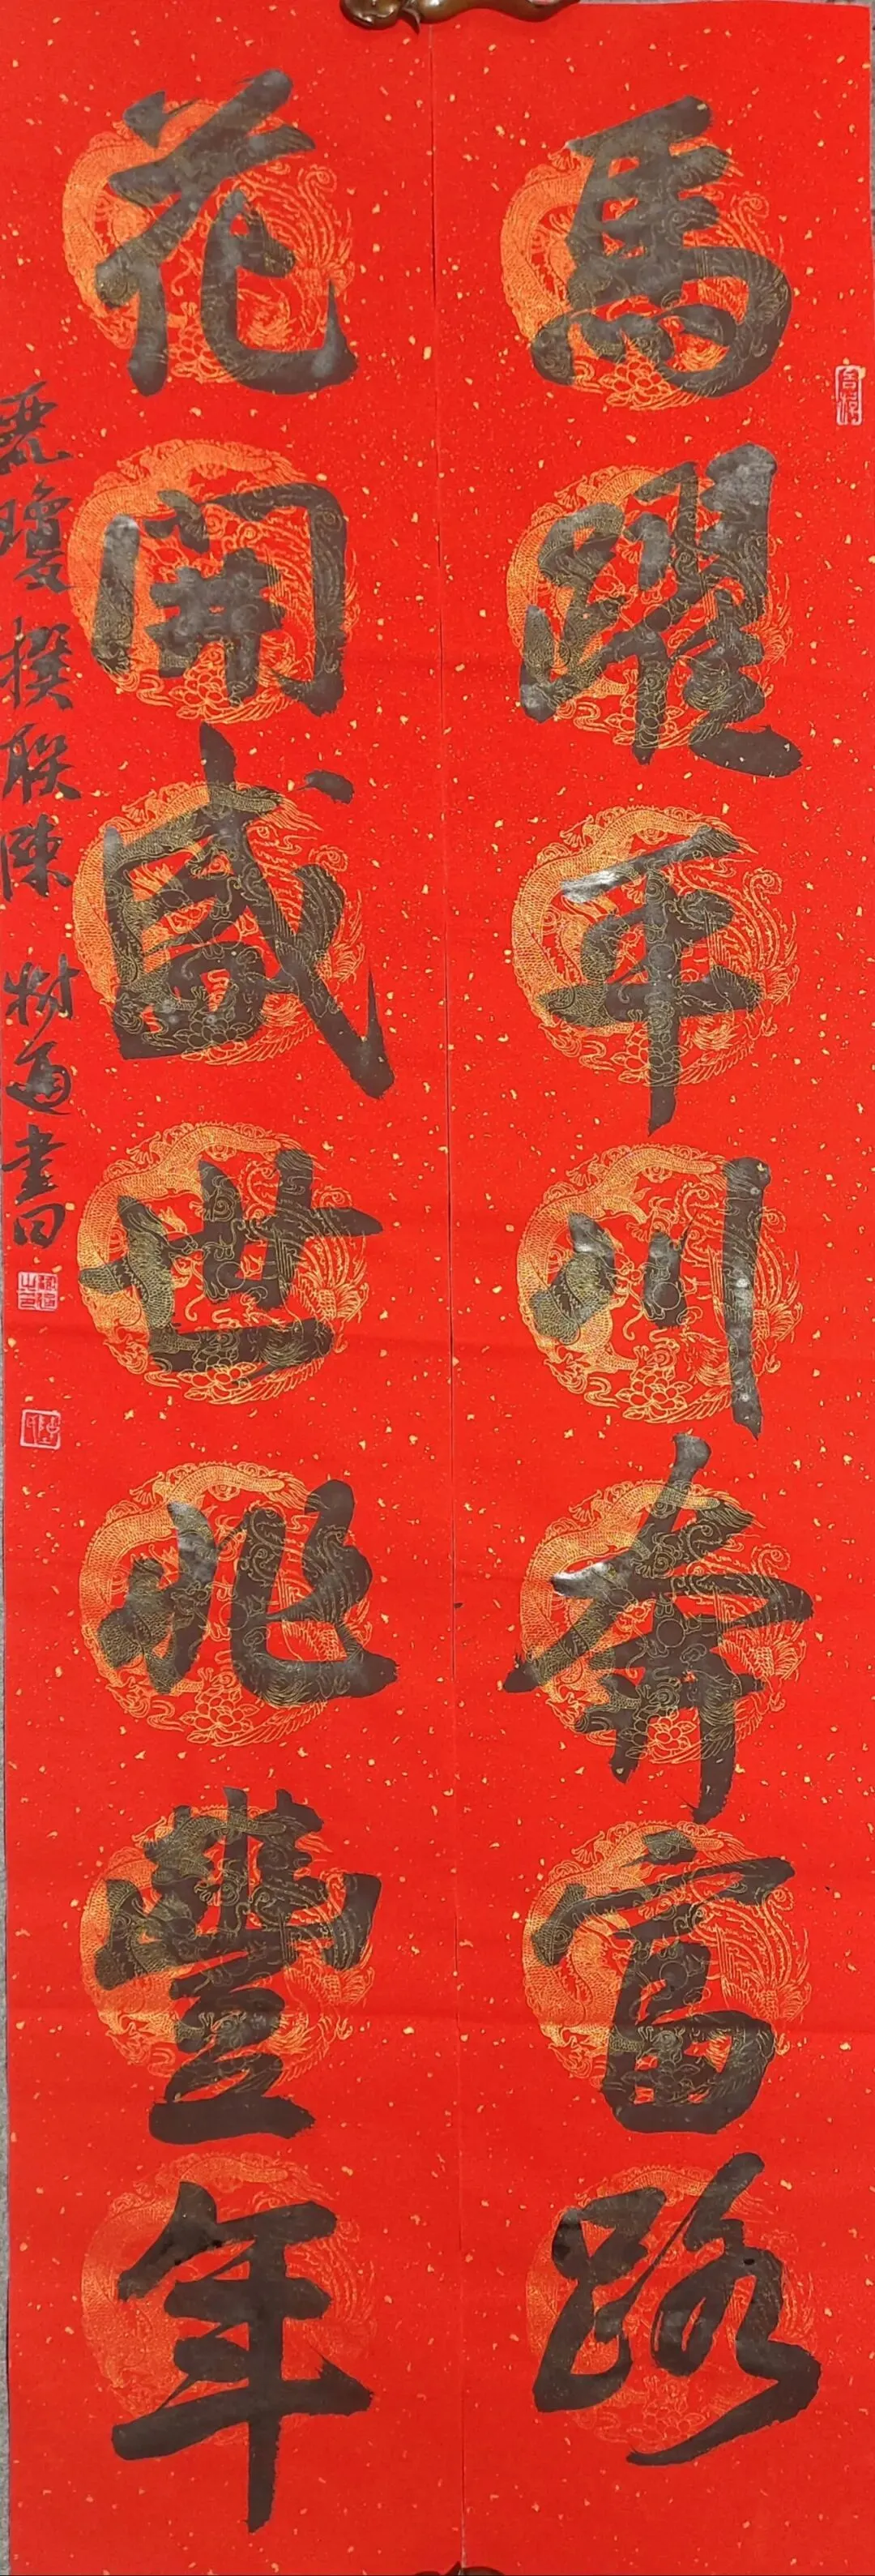 馬躍平川奔富路
花開盛世兆豐年
瓊撰联陳樹道書